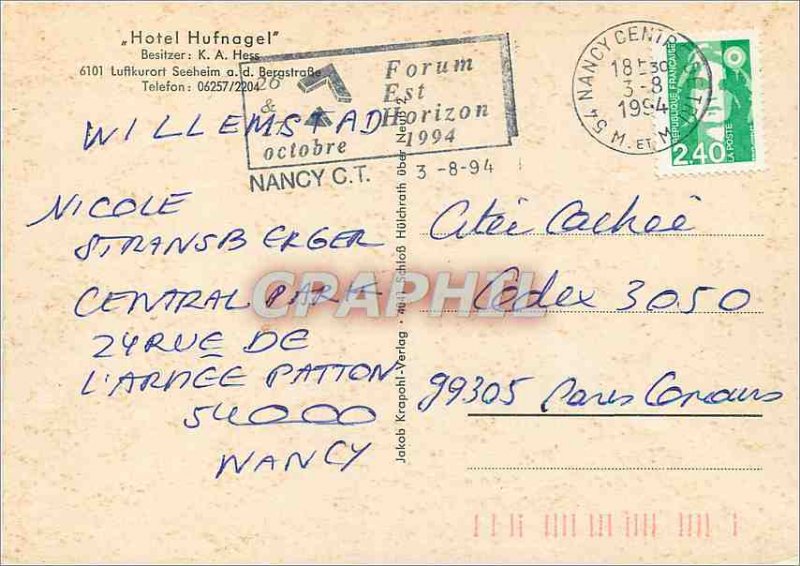 „Hotel Hufnagel"
Besitzer: K. A. Hess
6101 Luftkurort Seeheim a. d. Bergstraße
Telefon: 06257/2204
26
&
octobre
Forum
Est
Horizon
1994
NANCY C.T.
3-8-94
54 NANCY CENTRE
18
3-8
1994
M. ET M
RÉPUBLIQUE FRANÇAISE
LA POSTE
2,40
WILLEMSTAD
NICOLE
STRANSBERGER
CENTRAL PARK
24 RUE DE
L'ARMÉE PATTON
54000
NANCY
Jakob Krapohl-Verlag · 4041 Schloß Hülchrath über Neuß 2
Cedex 3050
99305 Paris Concours
CRAPHIL